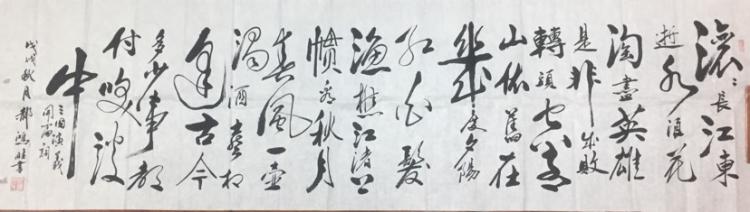 滚〻長江東
逝水浪花
淘盡英雄
是非成敗
轉頭空青
山依舊在
幾度夕陽
红白髮
渔樵江渚上
惯看秋月
春風一壶
濁酒喜相
逢古今
多少事都
付笑谈
中
三國演義
開篇詞
戊戌秋月鄭鴻書